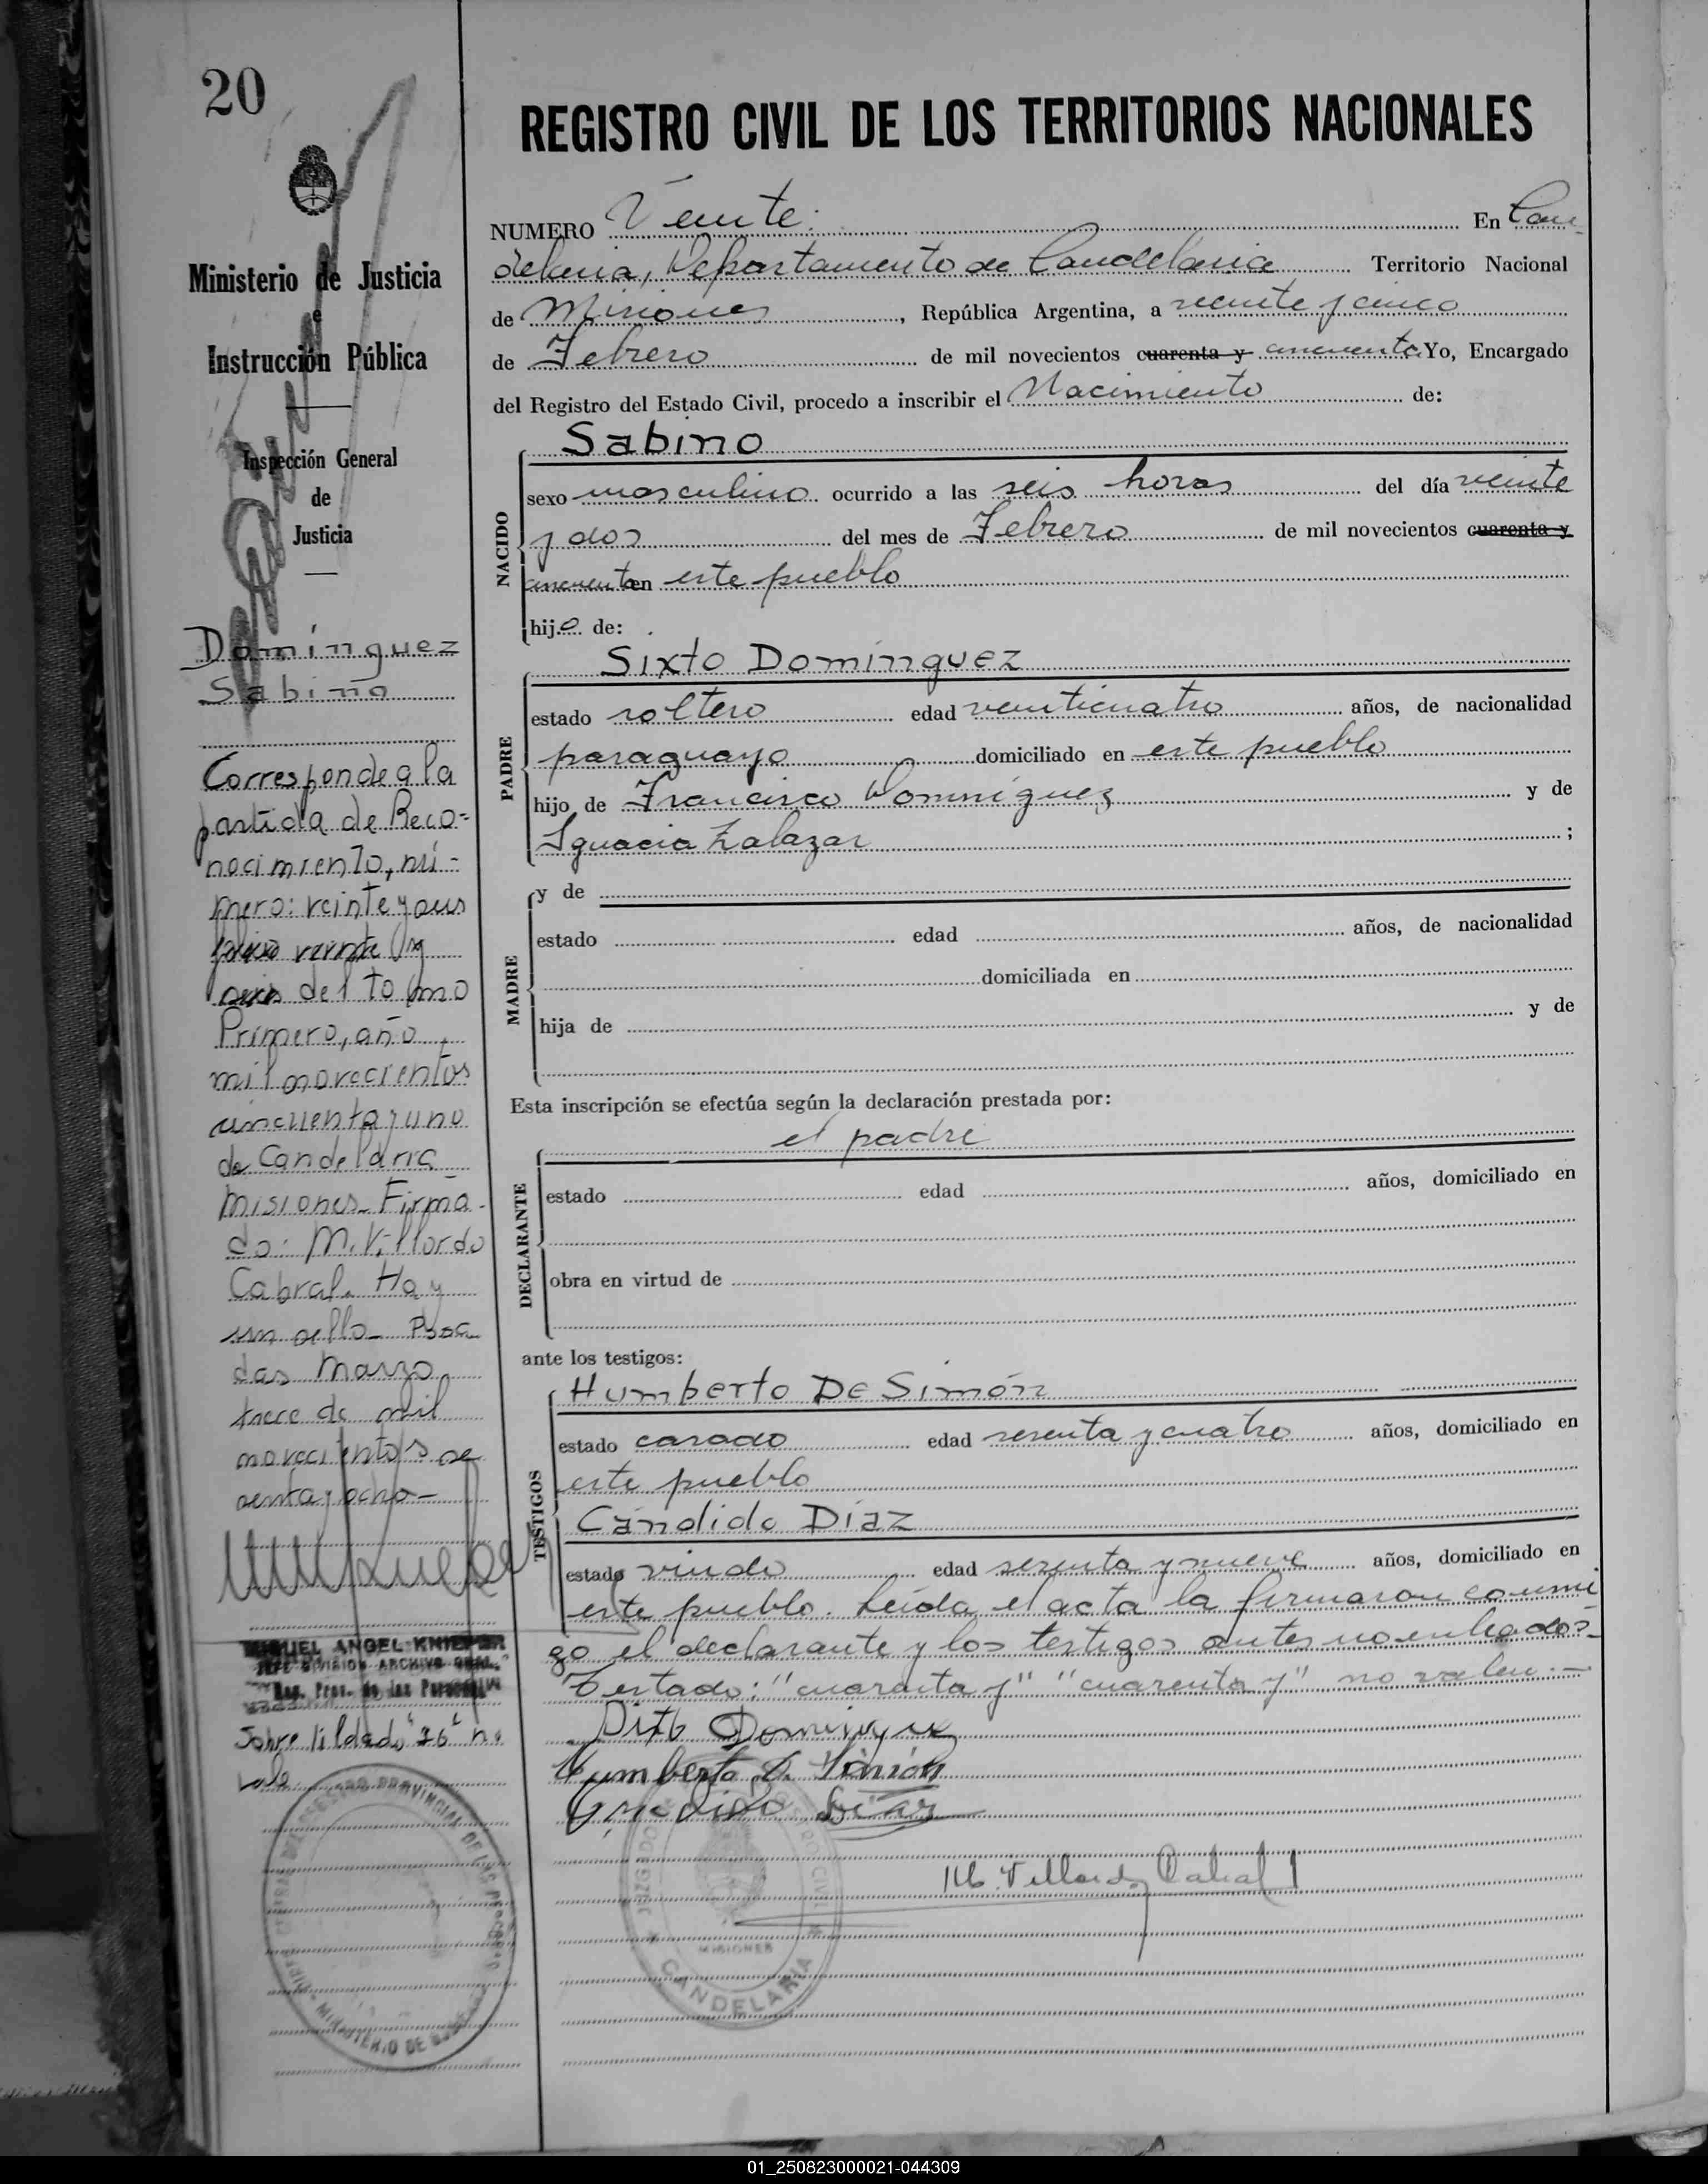 20
Ministerio de Justicia
e
Instrucción Pública
Inspección General
de
Justicia
Domínguez
Sabino
Corresponde a la
partida de Reco=
nocimiento, nú-
mero: veinte y seis
folio veinte y
seis del tomo
Primero, año
mil novecientos
cincuenta y uno
de Candelaria
Misiones_ Firma-
do: M. Villordo
Cabral. Hay
un sello_ Posa_
das Marzo
trece de mil
novecientos se
senta y ocho_
MIGUEL ANGEL KNIEPER
JEFE DIVISION ARCHIVO GRAL.
Reg. Prov. de las Personas
Sobre lildado "26" no
vale
REGISTRO PROVINCIAL DE LAS PERSONAS
MINISTERIO DE
REGISTRO CIVIL DE LOS TERRITORIOS NACIONALES
NUMERO Veinte. En Can-
delaria, Departamento de Candelaria Territorio Nacional
de Misiones, República Argentina, a veinte y cinco
de Febrero de mil novecientos cuarenta y cincuenta Yo, Encargado
del Registro del Estado Civil, procedo a inscribir el Nacimiento de:
NACIDO
Sabino
sexo masculino ocurrido a las seis horas del día veinte
y dos del mes de Febrero de mil novecientos cuarenta y
cincuenta en este pueblo
hijo de:
PADRE
Sixto Domínguez
estado soltero edad veinticuatro años, de nacionalidad
paraguayo domiciliado en este pueblo
hijo de Francisco Domínguez y de
Ignacia Zalazar ;
MADRE
y de
estado edad años, de nacionalidad
domiciliada en
hija de y de
Esta inscripción se efectúa según la declaración prestada por:
DECLARANTE
el padre
estado edad años, domiciliado en
obra en virtud de
ante los testigos:
TESTIGOS
Humberto De Simón
estado casado edad sesenta y cuatro años, domiciliado en
este pueblo
Cándido Díaz
estado viudo edad sesenta y nueve años, domiciliado en
este pueblo. Leída el acta la firmaron conmi
go el declarante y los testigos antes nombrados_
Testado: "cuarenta y" "cuarenta y" no valen._
Sixto Dominguez
Humberto D. Simón
Candido Diaz
M. Villordo Cabral
CIVIL
MISIONES
CANDELARIA
01_250823000021-044309